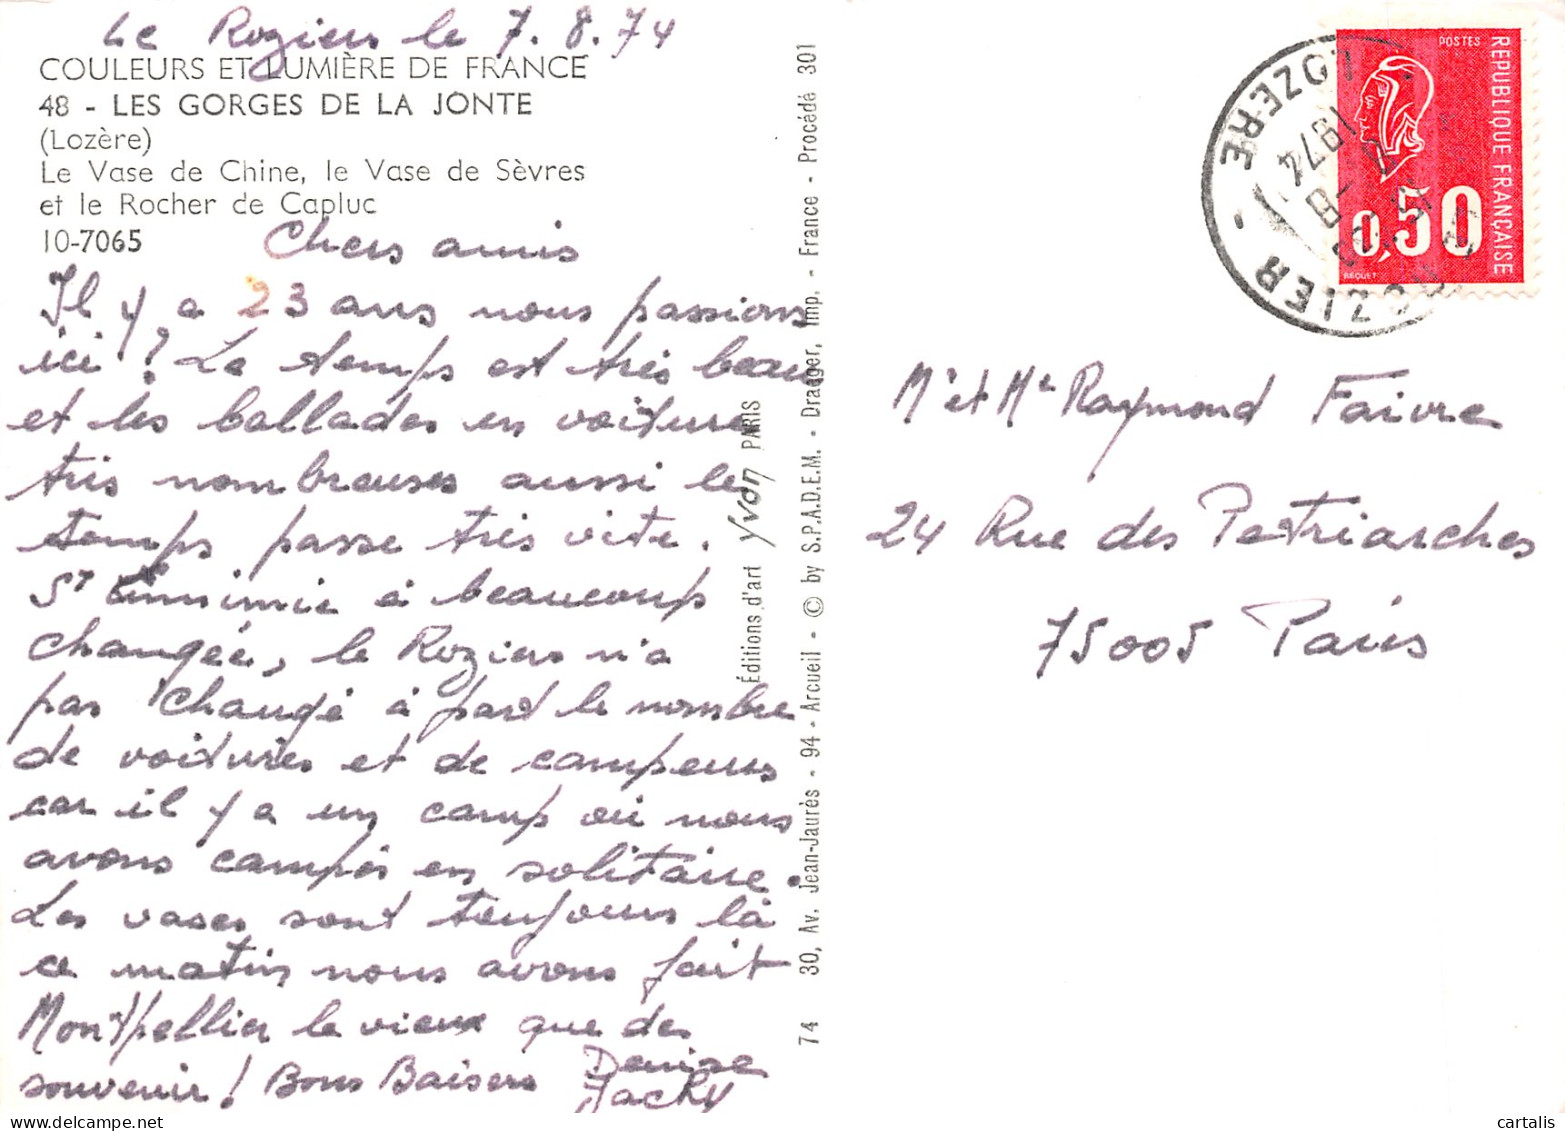 Le Roziers le 7.8.74
COULEURS ET LUMIÈRE DE FRANCE
48 - LES GORGES DE LA JONTE
(Lozère)
Le Vase de Chine, le Vase de Sèvres
et le Rocher de Capluc
10-7065
Chers amis
Il y a 23 ans nous passions
ici ? Le temps est très beau
et les ballades en voiture
très nombreuses aussi le
temps passe très vite.
St à beaucoup
changée, le Roziers n'a
pas changé à part le nombre
de voitures et de campeurs
car il y a un camp où nous
avons campés en solitaire.
Les vases sont toujours là
ce matin nous avons fait
Montpellier le vieux que des
souvenir ! Bons Baisers Denise
Jacky
Éditions d'art Yvon PARIS
30, Av. Jean-Jaurès - 94 - Arcueil - © by S.P.A.D.E.M. - Draeger, Imp. - France - Procédé 301
74
POSTES
RÉPUBLIQUE FRANÇAISE
0,50
BEQUET
LOZERE
1974
Mr et Me Raymond Faivre
24 Rue des Patriarches
75005 Paris